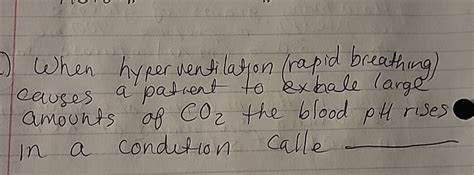 ) When hyperventilation (rapid breathing)
causes a patient to exhale large
amounts of CO2 the blood pH rises
in a condition calle